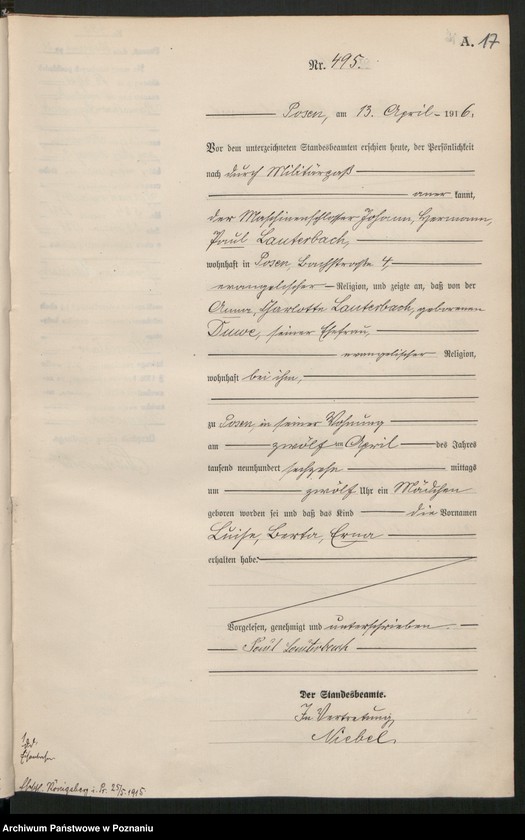 A. 17
Nr. 495.
Posen, am 13. April 1916.
Vor dem unterzeichneten Standesbeamten erschien heute, der Persönlichkeit
nach durch Militärpaß
anerkannt,
der Maschinenschlosser Johann, Hermann,
Paul Lauterbach,
wohnhaft in Posen, Bachstraße 4,
evangelischer Religion, und zeigte an, daß von der
Anna, Charlotte Lauterbach, geborenen
Duwe, seiner Ehefrau,
evangelischer Religion,
wohnhaft bei ihm,
zu Posen, in seiner Wohnung
am zwölften April des Jahres
tausend neunhundert sechzehn mittags
um zwölf Uhr ein Mädchen
geboren worden sei und daß das Kind die Vornamen
Luise, Berta, Erna
erhalten habe.
Vorgelesen, genehmigt und unterschrieben
Paul Lauterbach
Der Standesbeamte.
In Vertretung,
Niebel
Königsberg i. Pr. 1915
Archiwum Państwowe w Poznaniu